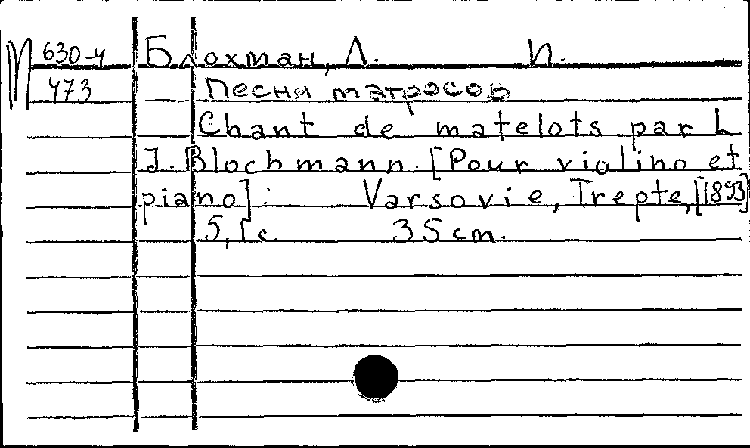 М 630-4 Блохман, Л. И.
473 Песни матросов
Chant de matelots par L
J. Blochmann. [Pour violino et
piano]. Varsovie, Trepte, [1893]
5, 1 c. 35 cm.